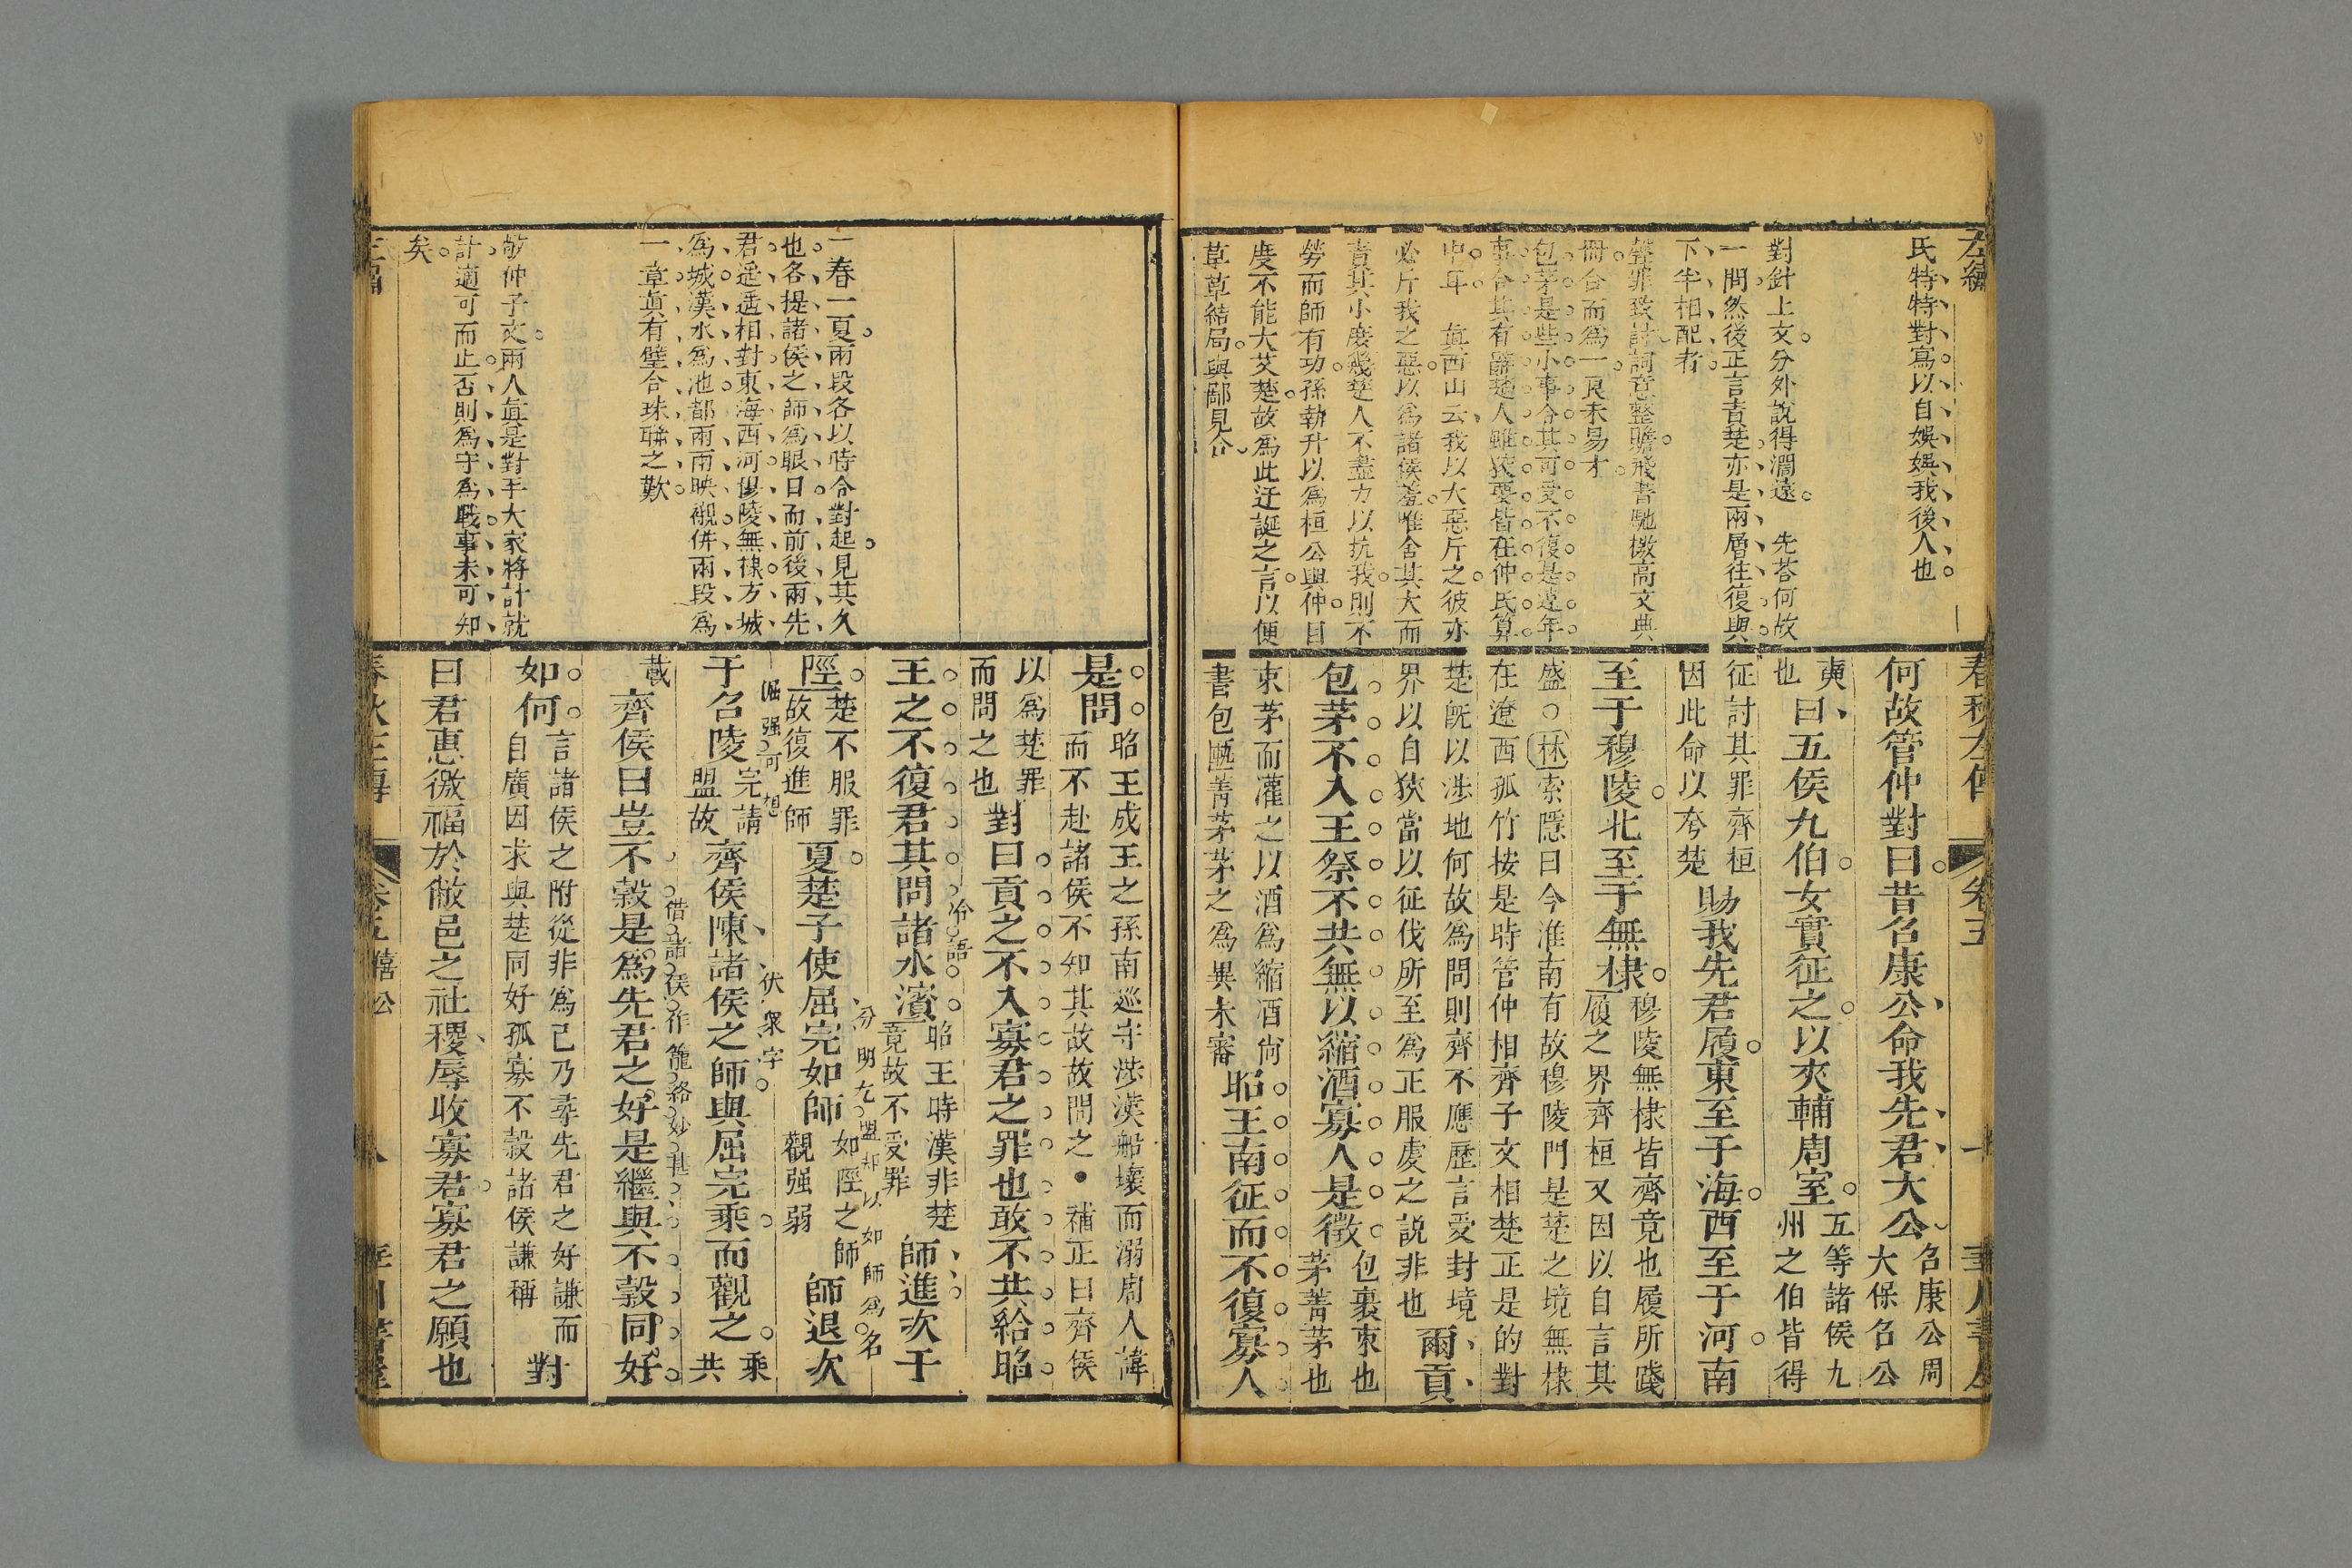 左繡
氏特特對寫以自娛娛我後人也
對針上文分外說得濶遠　先荅何故
一間然後正言責楚亦是兩層往復與
下半相配者
聲罪致討詞意整贍飛書馳檄高文典
冊合而爲一良未易才
包茅是些小事令其可受不復是遠年
事令其有辭楚人雖狡要皆在仲氏算
中耳　眞西山云我以大惡斤之彼亦
必斤我之惡以爲諸侯羞唯舍其大而
責其小庶幾楚人不盡力以抗我則不
勞而師有功孫執升以爲桓公與仲目
度不能大芟楚故爲此迂誕之言以便
草草結局與鄙見合
春秋左傳　卷五
何故管仲對曰昔召康公命我先君大公召康公周大保召公
奭也曰五侯九伯女實征之以夾輔周室五等諸侯九州之伯皆得
征討其罪齊桓因此命以夸楚賜我先君履東至于海西至于河南
至于穆陵北至于無棣穆陵無棣皆齊竟也履所踐履之界齊桓又因以自言其
盛○林索隱曰今淮南有故穆陵門是楚之境無棣在遼西孤竹按是時管仲相齊子文相楚正是的對
楚旣以渉地何故爲問則齊不應歷言受封境界以自狹當以征伐所至爲正服虔之説非也爾貢
包茅不入王祭不共無以縮酒寡人是徵包裹束也茅菁茅也
束茅而灌之以酒爲縮酒尙書包匭菁茅茅之爲異未審昭王南征而不復寡人
是問昭王成王之孫南巡守渉漢船壞而溺周人諱而不赴諸侯不知其故故問之●補正曰齊侯
以爲楚罪而問之也對曰貢之不入寡君之罪也敢不共給昭
王之不復君其問諸水濱昭王時漢非楚竟故不受罪師進次于
冷語
陘楚不服罪故復進師夏楚子使屈完如師如陘之師觀强弱師退次
分明乞盟却以如師爲名
于召陵完請盟故齊侯陳諸侯之師與屈完乘而觀之乘共
倔强可想
伏衆字
載齊侯曰豈不穀是爲先君之好是繼與不穀同好
借諸侯作籠絡妙甚
如何言諸侯之附從非爲己乃尋先君之好謙而自廣因求與楚同好孤寡不穀諸侯謙稱對
曰君惠徼福於敝邑之社稷辱收寡君寡君之願也
一春一夏兩段各以時令對起見其久
也各提諸侯之師爲眼目而前後兩先
君遥遥相對東海西河穆陵無棣方城
爲城漢水爲池都兩兩映襯併兩段爲
一章眞有璧合珠聯之歎
敬仲子文兩人眞是對手大家將計就
計適可而止否則爲守爲戰事未可知
矣
卷五僖公　八